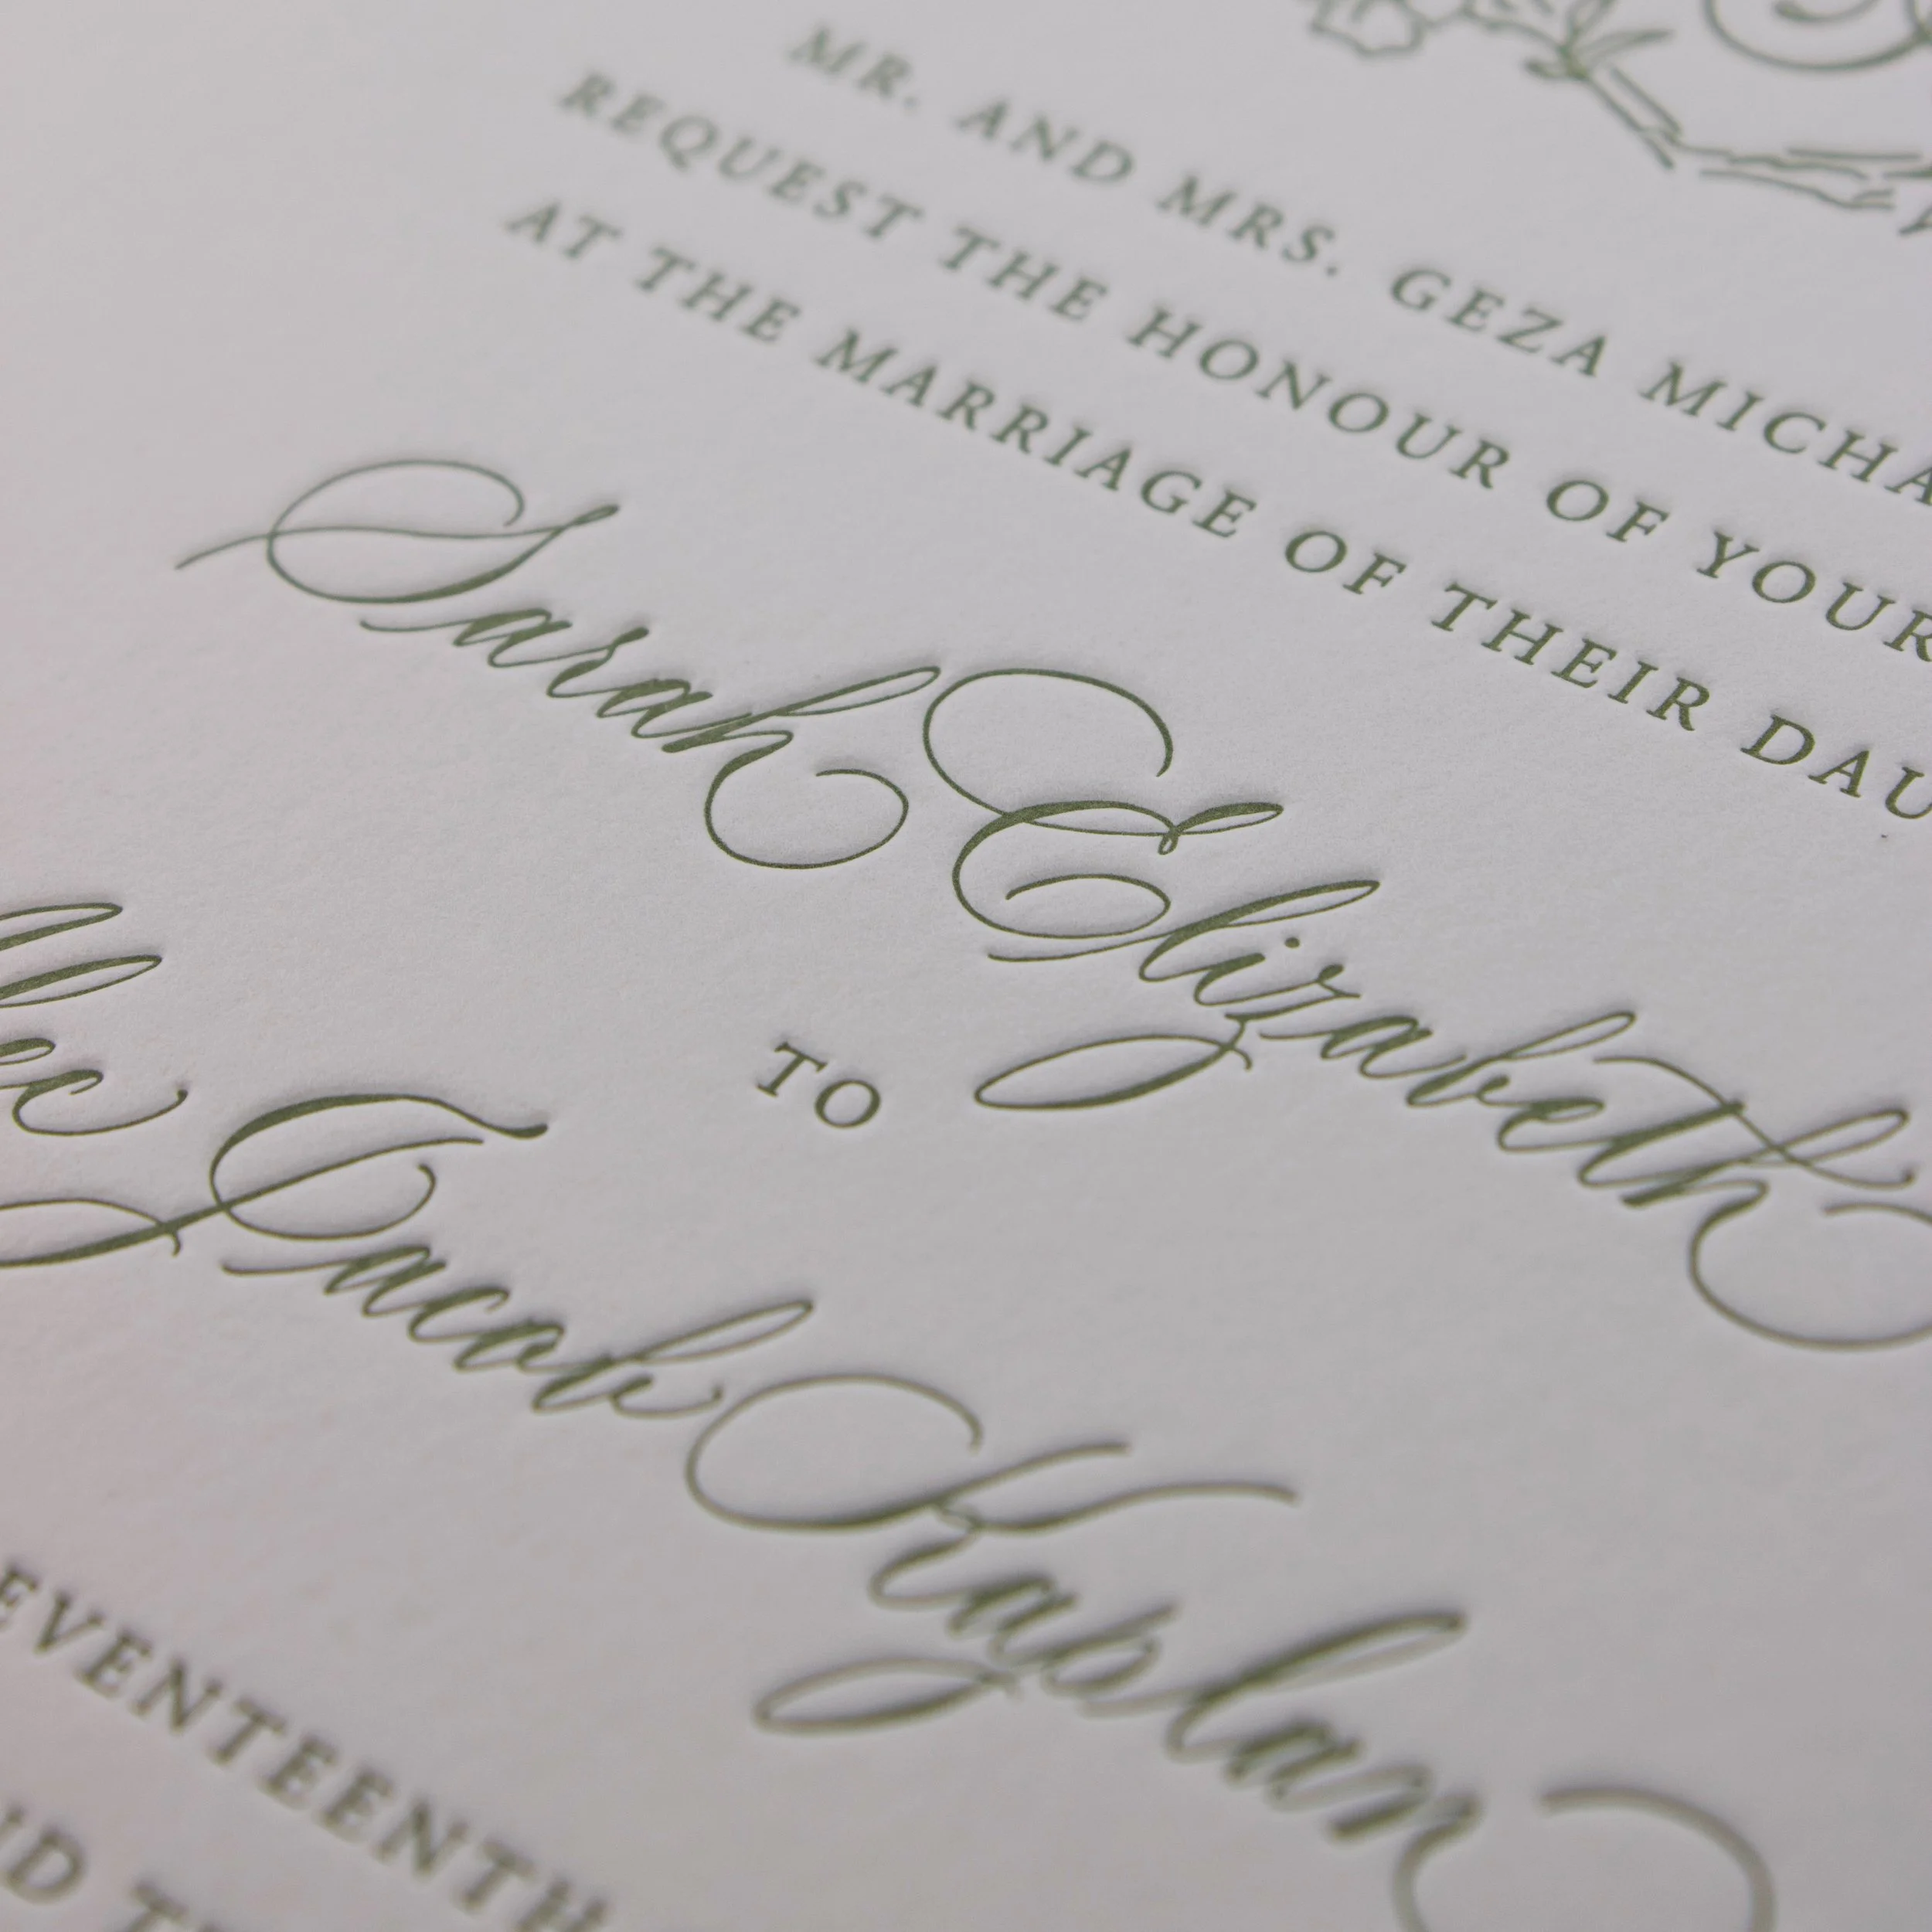 MR. AND MRS. GEZA MICHA
REQUEST THE HONOUR OF YOUR
AT THE MARRIAGE OF THEIR DAU
Sarah Elizabeth
TO
lec Jacob Kaplan
EVENTEENTH